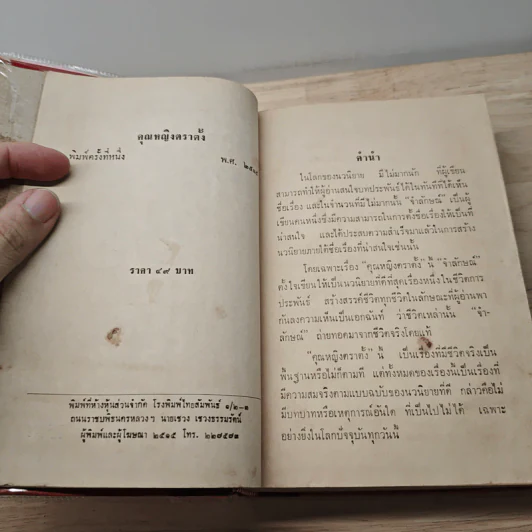 คุณหญิงตราตั้ง
พิมพ์ครั้งที่หนึ่ง
พ.ศ.
ราคา ๔๙ บาท
พิมพ์ที่ห้างหุ้นส่วนจำกัด โรงพิมพ์ไทยสัมพันธ์ ๑/๒-๑
ถนนราชบพิธนครหลวง ฯ นายเชวง เชวงธรรมรัตน์
ผู้พิมพ์และผู้โฆษณา ๒๕๑๕ โทร.
คำนำ
ในโลกของนวนิยาย มีไม่มากนัก ที่ผู้เขียน
สามารถทำให้ผู้อ่านสนใจบทประพันธ์ได้ในทันทีที่ได้เห็น
ชื่อเรื่อง และในจำนวนที่มีไม่มากนั้น "จำลักษณ์" เป็นผู้
เขียนคนหนึ่งซึ่งมีความสามารถในการตั้งชื่อเรื่องให้เป็นที่
น่าสนใจ และได้ประสบความสำเร็จมาแล้วในการสร้าง
นวนิยายภายใต้ชื่อเรื่องที่น่าสนใจเช่นนั้น
โดยเฉพาะเรื่อง "คุณหญิงตราตั้ง" นี้ "จำลักษณ์"
ตั้งใจเขียนให้เป็นนวนิยายที่ดีที่สุดเรื่องหนึ่งในชีวิตการ
ประพันธ์ สร้างสรรค์ชีวิตทุกชีวิตในลักษณะที่ผู้อ่านพา
กันลงความเห็นเป็นเอกฉันท์ ว่าชีวิตเหล่านั้น "จำ-
ลักษณ์" ถ่ายทอดมาจากชีวิตจริงโดยแท้
"คุณหญิงตราตั้ง" นี้ เป็นเรื่องที่มีชีวิตจริงเป็น
พื้นฐานหรือไม่ก็ตามที แต่ทั้งหมดของเรื่องนี้เป็นเรื่องที่
มีความสมจริงตามแบบฉบับของนวนิยายที่ดี กล่าวคือไม่
มีบทบาทหรือเหตุการณ์อันใด ที่เป็นไปไม่ได้ เฉพาะ
อย่างยิ่งในโลกปัจจุบันทุกวันนี้